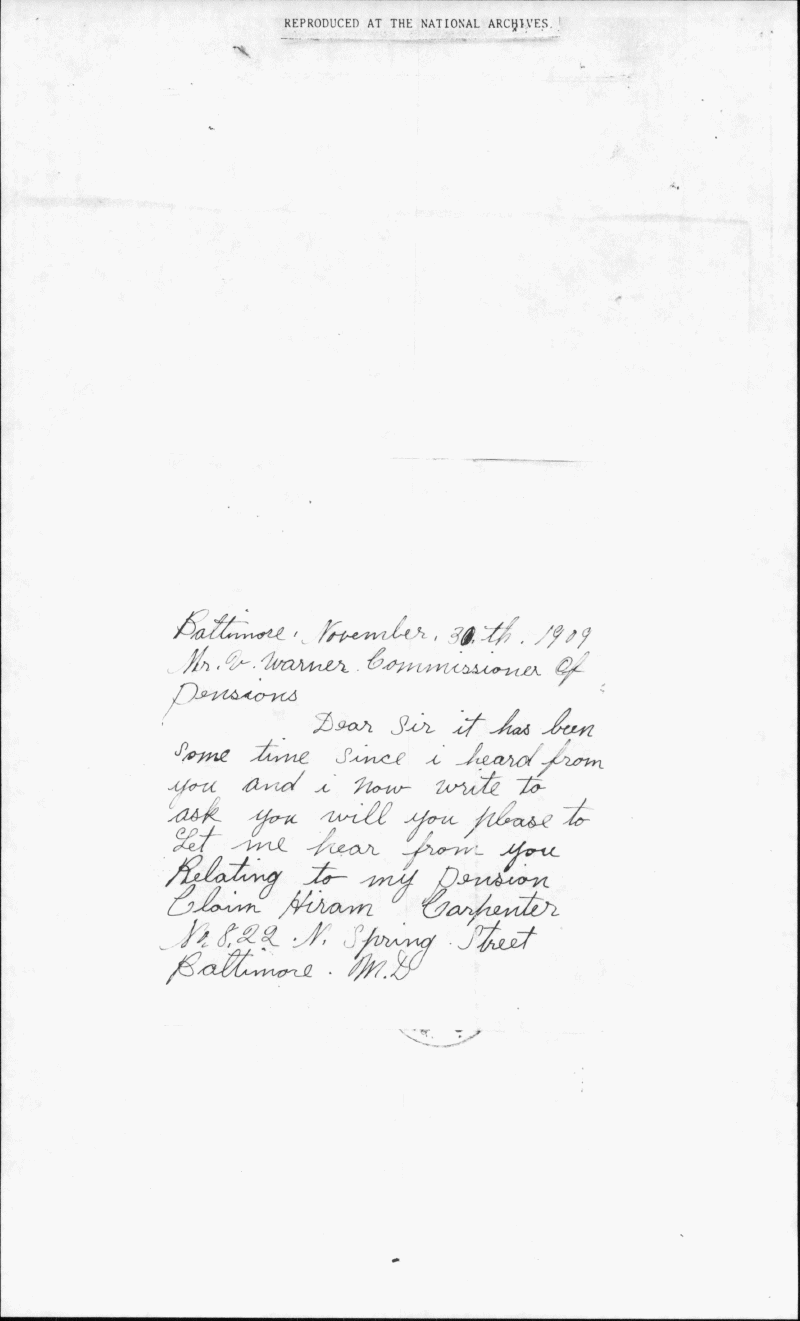 REPRODUCED AT THE NATIONAL ARCHIVES.
Baltimore, November, 30.th. 1909
Mr. V. Warner. Commissioner Of
Pensions
Dear Sir it has been
Some time Since i heard from
you and i now write to
ask you will you please to
Let me hear from you
Relating to my Pension
Claim Hiram Carpenter
No 8.22. N. Spring Street
Baltimore. M.D